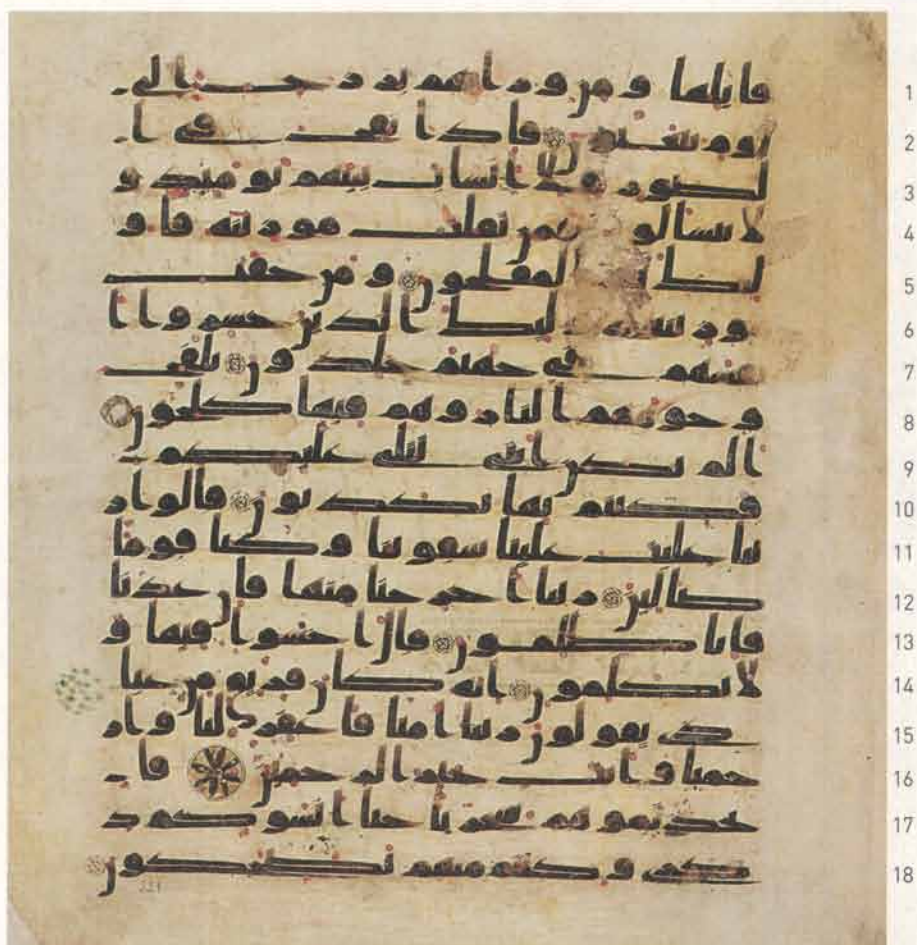 قايلها و من ورايهم برزخ الى 1
يوم يبعثون فاذا نفخ في ا 2
لصور فلا انساب بينهم يومئذ و 3
لا يتسالو من ثقلت موزينه فاو 4
لئك لمفلحون و من خفت 5
موزينه لئك الذين خسروا ا 6
نفسهم في جهنم خلدون تلفح 7
و جوههم النار و هم فيها كلحون 8
الم تكن ايتي تتلى عليكم 9
فكنتم بها تكذبون قالوا ر 10
بنا غلبت علينا شقوتنا و كنا قوما 11
ضالين ربنا اخرجنا منها فان عدنا 12
فانا ظلمون قال اخسوا فيها و 13
لا تكلمون انه كان فريق من عبا 14
دي يقولون ربنا امنا فاغفر لنا و ار 15
حمنا و انت خير الرحمين فا 16
تخذتموهم سخريا حتا انسوكم ذ 17
كري و كنتم منهم تضحكون 18